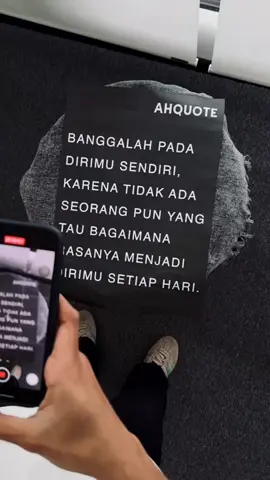 AHQUOTE
BANGGALAH PADA
DIRIMU SENDIRI,
KARENA TIDAK ADA
SEORANG PUN YANG
TAU BAGAIMANA
RASANYA MENJADI
DIRIMU SETIAP HARI.